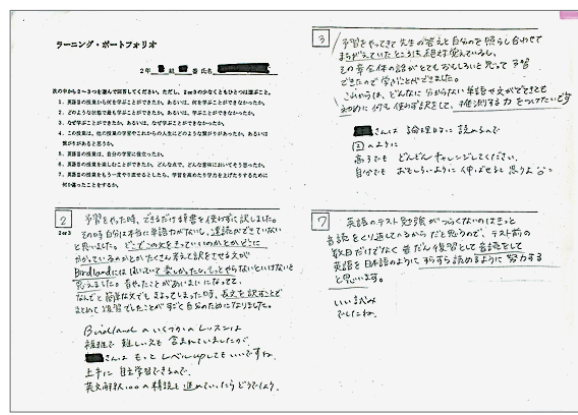 ラーニング・ポートフォリオ
2年 組 番 氏名
次の中から2〜3つを選んで回答してください。ただし、2か3の少なくともひとつは選ぶこと。
1. 英語Ⅱの授業から何を学ぶことができたか。あるいは、何を学ぶことができなかったか。
2. どのような状態で最も学んだか。あるいは、学ぶことができなかったか。
3. なぜ学ぶことができたか。あるいは、なぜ学ぶことができなかったか。
4. この授業は、他の授業の学習やこれからの人生にどのような繋がりがあったか、あるいは
繋がりがあると思うか。
5. 英語Ⅱの授業は、自分の学習に役立ったか。
6. 英語Ⅱの授業を楽しむことができたか。どんな点で、どんな意味においてそう思ったか。
7. 英語Ⅱの授業をもう一度やり直せるとしたら、学習を高めたり学力を上げたりするために
何か違ったことをするか。
2
2or3
予習をやった時、できるだけ辞書を使わずに訳しました。
その時自分は本当に単語力がないし、速読ができていない
と思いました。どこでこの文をきっていいのかとかどこに
かかっているのかとかたくさん考えて訳をさせる文が
Birdlandには
思えました。昔やったことがあいまいになってて、
なんでも簡単な文でも止まってしまった時、長文を訳すことで
まとめて復習でしたことがすごく自分のためになりました。
Birdlandのいくつかのレッスンは
難しい文も含まれていましたが、
さんはもっとレベルupしてもいいですね。
上手に自主学習できるので、
英文解釈100の精読も進めていったらどうでしょう。
3
予習をやってきて先生の答えと自分のを照らし合わせて
まちがえていたところは絶対覚えているし、
その章全体の話がとてもおもしろいと思って予習
できたので学ぶことができました。
これからは、どんなに分からない単語や文がでてきても
初めに何も使わず訳をして、推測する力をつけたいです
さんは論理的に読めるので
国のように
高3でもどんどんチャレンジしてください。
自分でもおもしろいように伸ばせると思うよ
7
英語のテスト勉強がつらくないのはきっと
音読をくり返しているからだと思うので、テスト前の
数日だけでなく普だん復習として音読をして
英語を日本語のようにすらすら読めるように努力する
と思います。
いい試み
でしたね。